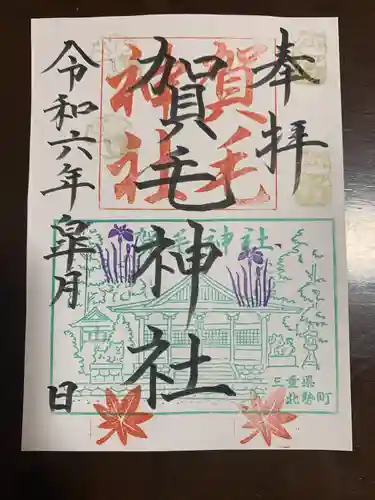 奉拝
賀毛神社
賀毛
神社
賀毛神社
三重県
北勢町
令和六年皐月
日